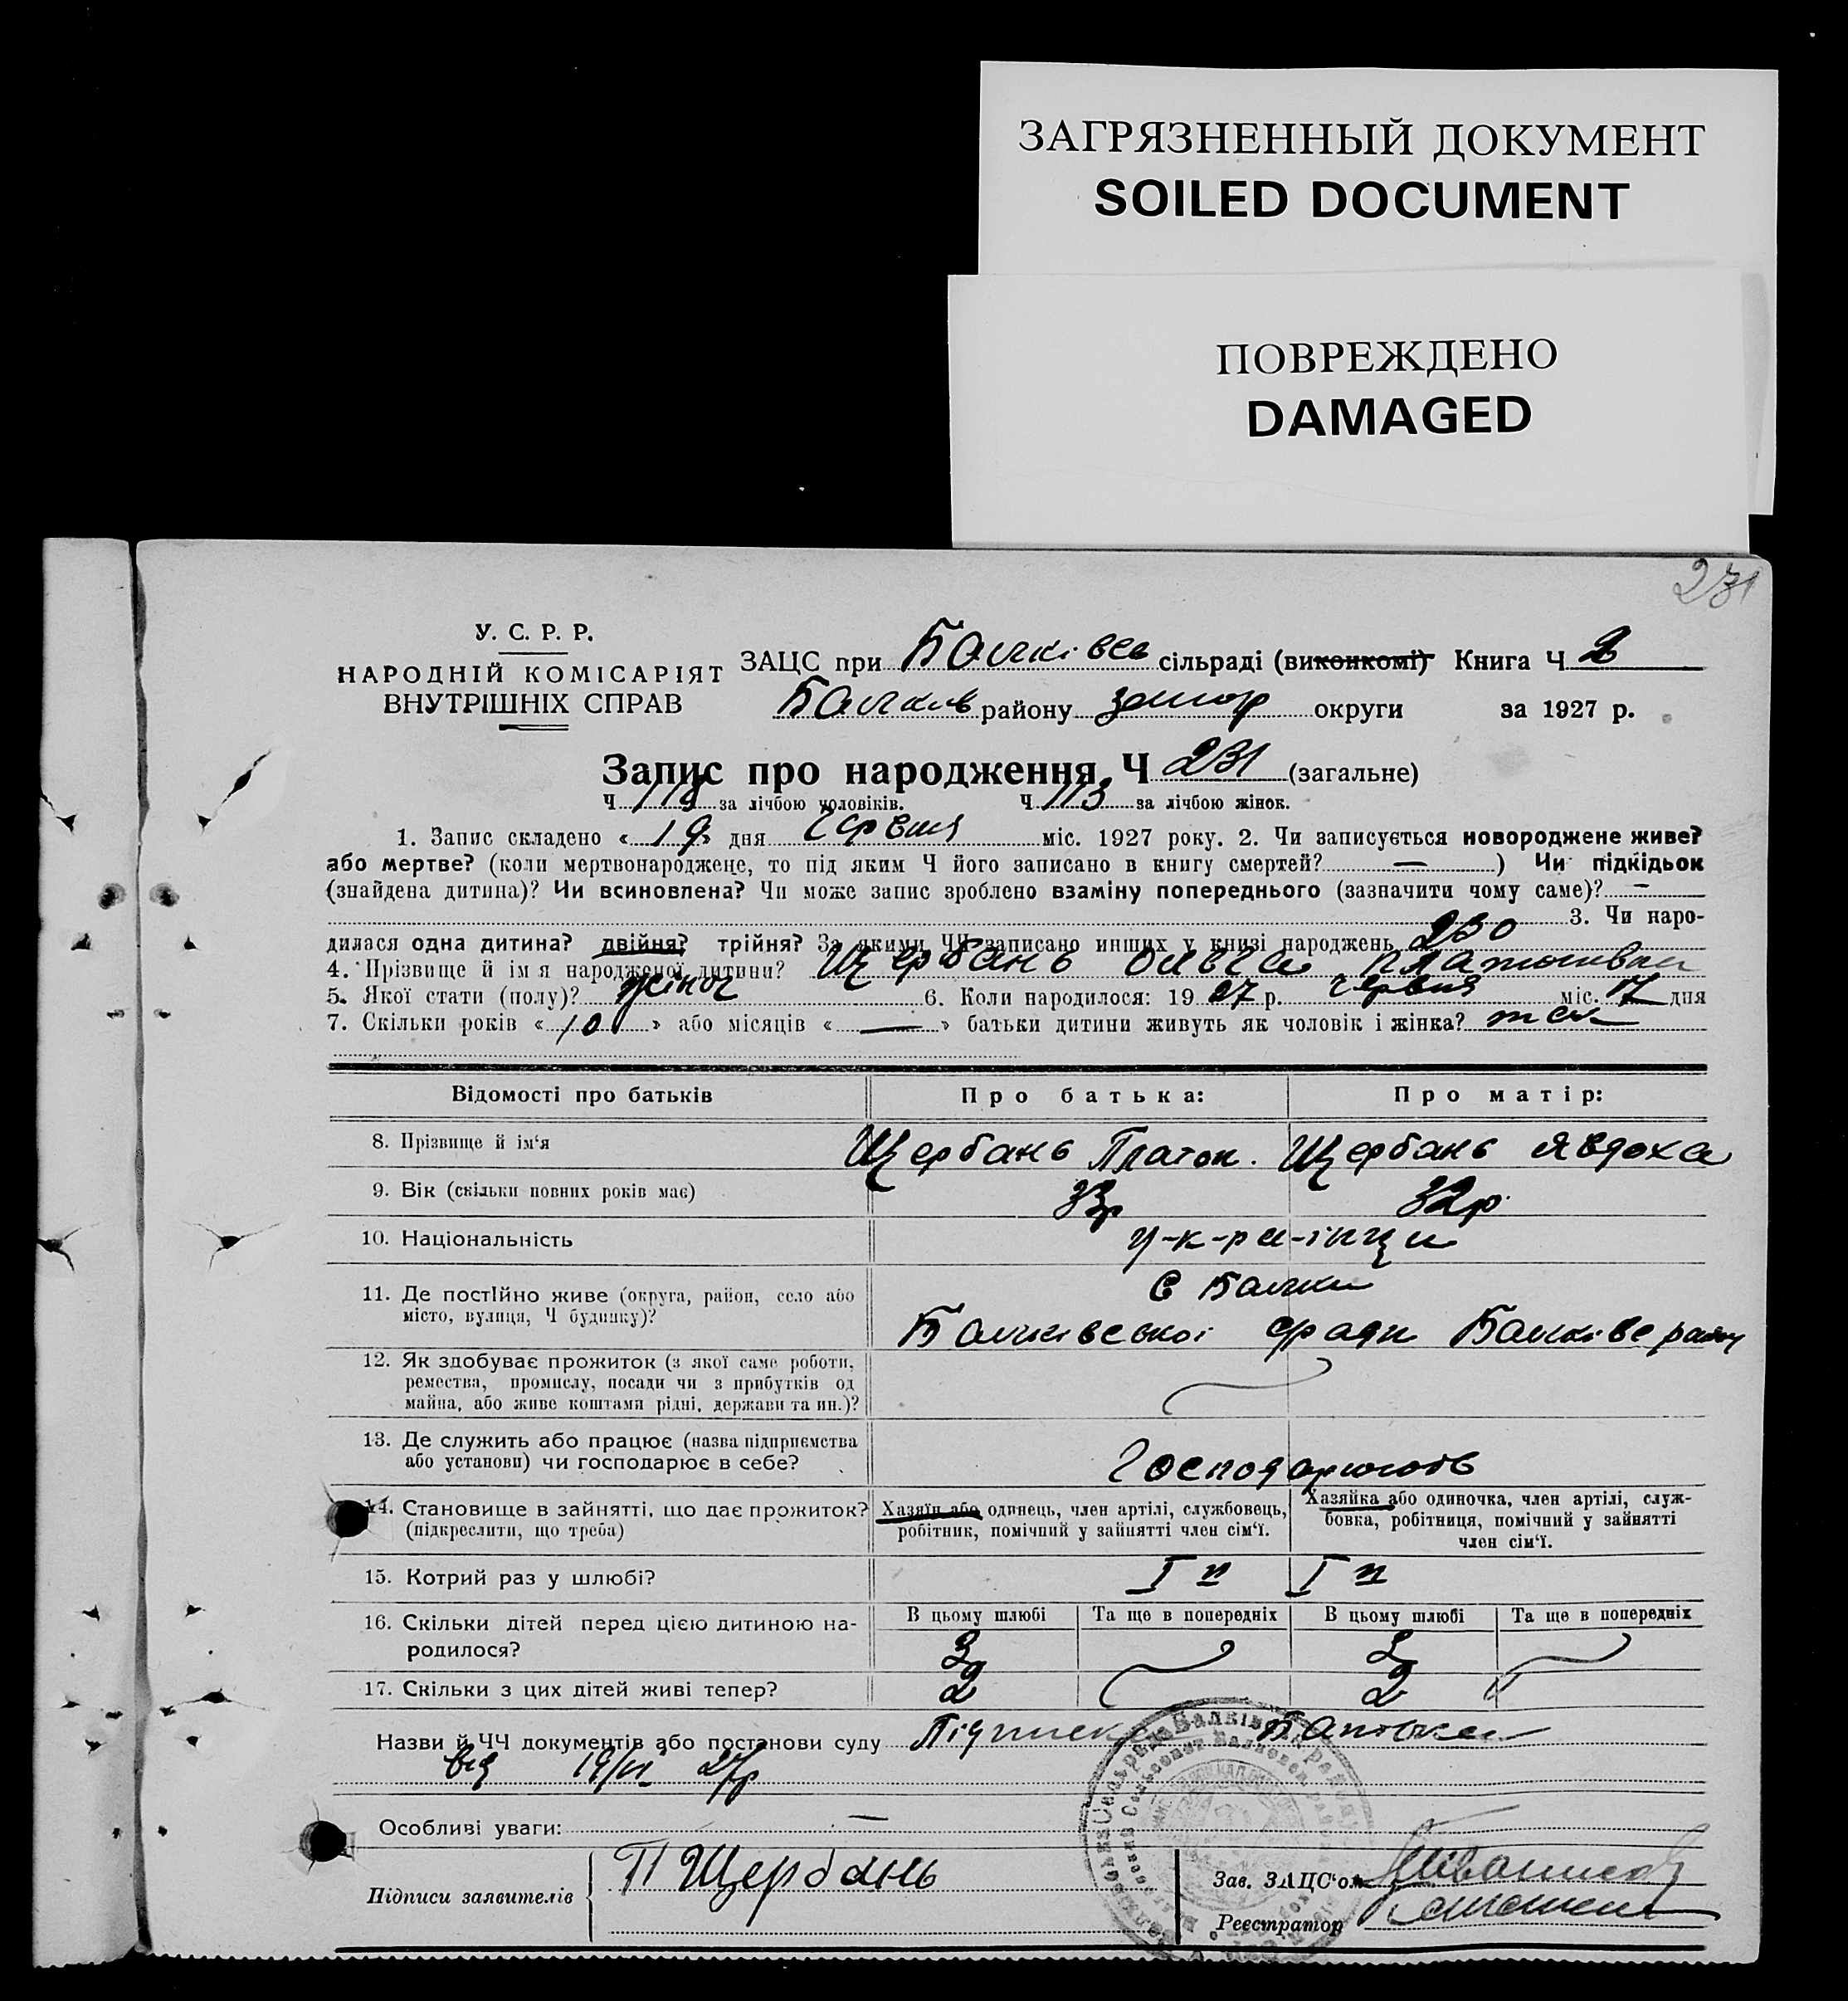 ЗАГРЯЗНЕННЫЙ ДОКУМЕНТ
SOILED DOCUMENT
ПОВРЕЖДЕНО
DAMAGED
231
У. С. Р. Р.
НАРОДНІЙ КОМІСАРІЯТ
ВНУТРІШНІХ СПРАВ
ЗАЦС при Балківсь сільраді (виконкомі) Книга Ч 2
Балків району запор округи за 1927 р.
Запис про народження Ч 231 (загальне)
Ч 118 за лічбою чоловіків. Ч 113 за лічбою жінок.
1. Запис складено « 19 » дня червня міс. 1927 року. 2. Чи записується новороджене живе?
або мертве? (коли мертвонароджене, то під яким Ч його записано в книгу смертей? — ) Чи підкідьок
(знайдена дитина)? Чи всиновлена? Чи може запис зроблено взаміну попереднього (зазначити чому саме)? —
3. Чи наро-
дилася одна дитина? двійня? трійня? За якими ЧЧ записано инших у книзі народжень 230
4. Прізвище й імя народженої дитини? Щербань Ольга Платонівна
5. Якої стати (полу)? жіноч 6. Коли народилося: 19 27 р. червня міс. 17 дня
7. Скільки років « 10 » або місяців « — » батьки дитини живуть як чоловік і жінка? так
Відомості про батьків Про батька: Про матір:
8. Прізвище й ім'я Щербань Платон. Щербань Явдоха
9. Вік (скільки повних років має) 33р 32р
10. Національність у-к-ра-їнци
11. Де постійно живе (округа, район, село або
місто, вулиця, Ч будинку)?
с Балки
Балківської сради Балківс району
12. Як здобуває прожиток (з якої саме роботи,
ремества, промислу, посади чи з прибутків од
майна, або живе коштами рідні, держави та ин.)?
13. Де служить або працює (назва підприємства
або установи) чи господарює в себе?
Господарюють
14. Становище в зайнятті, що дає прожиток?
(підкреслити, що треба)
Хазяїн або одинець, член артілі, службовець,
робітник, помічний у зайнятті член сім'ї.
Хазяйка або одиночка, член артілі, служ-
бовка, робітниця, помічний у зайнятті
член сім'ї.
15. Котрий раз у шлюбі? I й I й
16. Скільки дітей перед цією дитиною на-
родилося?
В цьому шлюбі Та ще в попередніх В цьому шлюбі Та ще в попередніх
17. Скільки з цих дітей живі тепер? 2 2
Назви й ЧЧ документів або постанови суду Підписка Батька
від 19/VI 27р
Особливі уваги: —
Підписи заявителів П Щербань
Зав. ЗАЦС'ом
Реєстратор